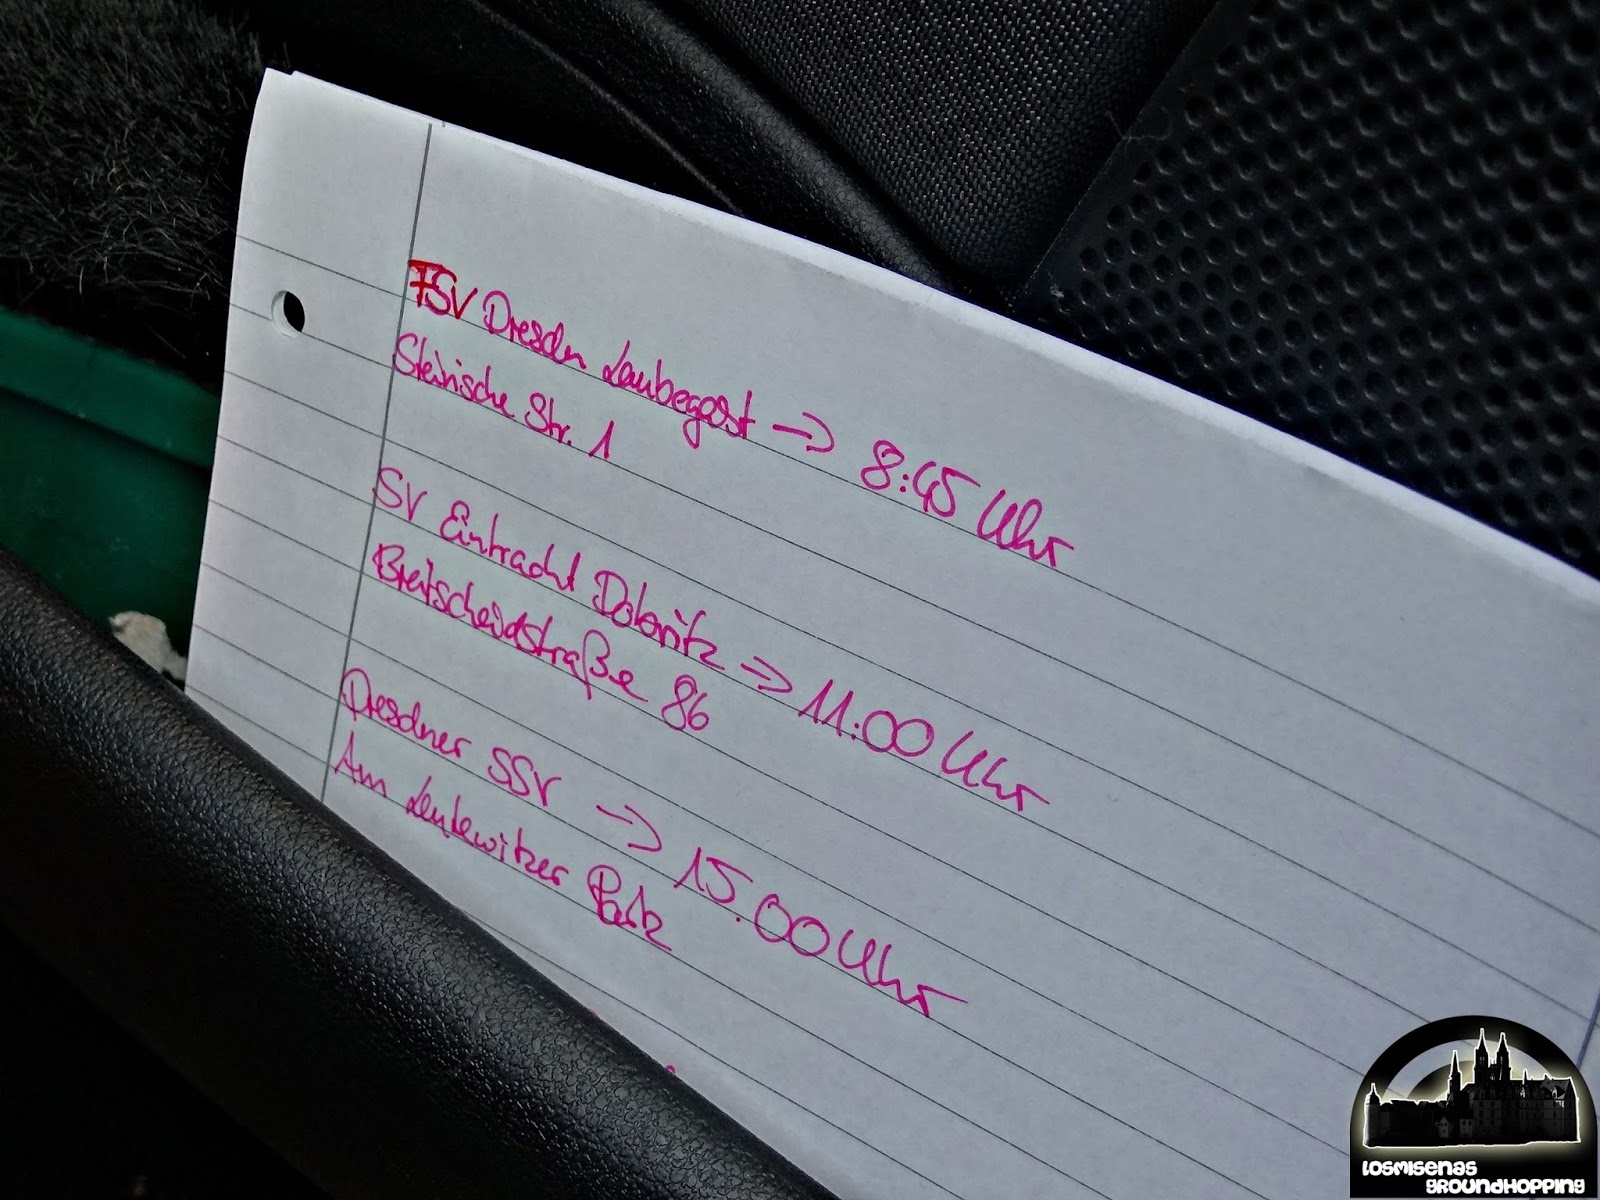 FSV Dresden Laubegast → 8:45 Uhr
Steirische Str. 1
SV Eintracht Dobritz → 11.00 Uhr
Breitscheidtstraße 86
Dresdner SSV → 15.00 Uhr
Am Leutewitzer Park
LOSMISENAS
GROUNDHOPPING